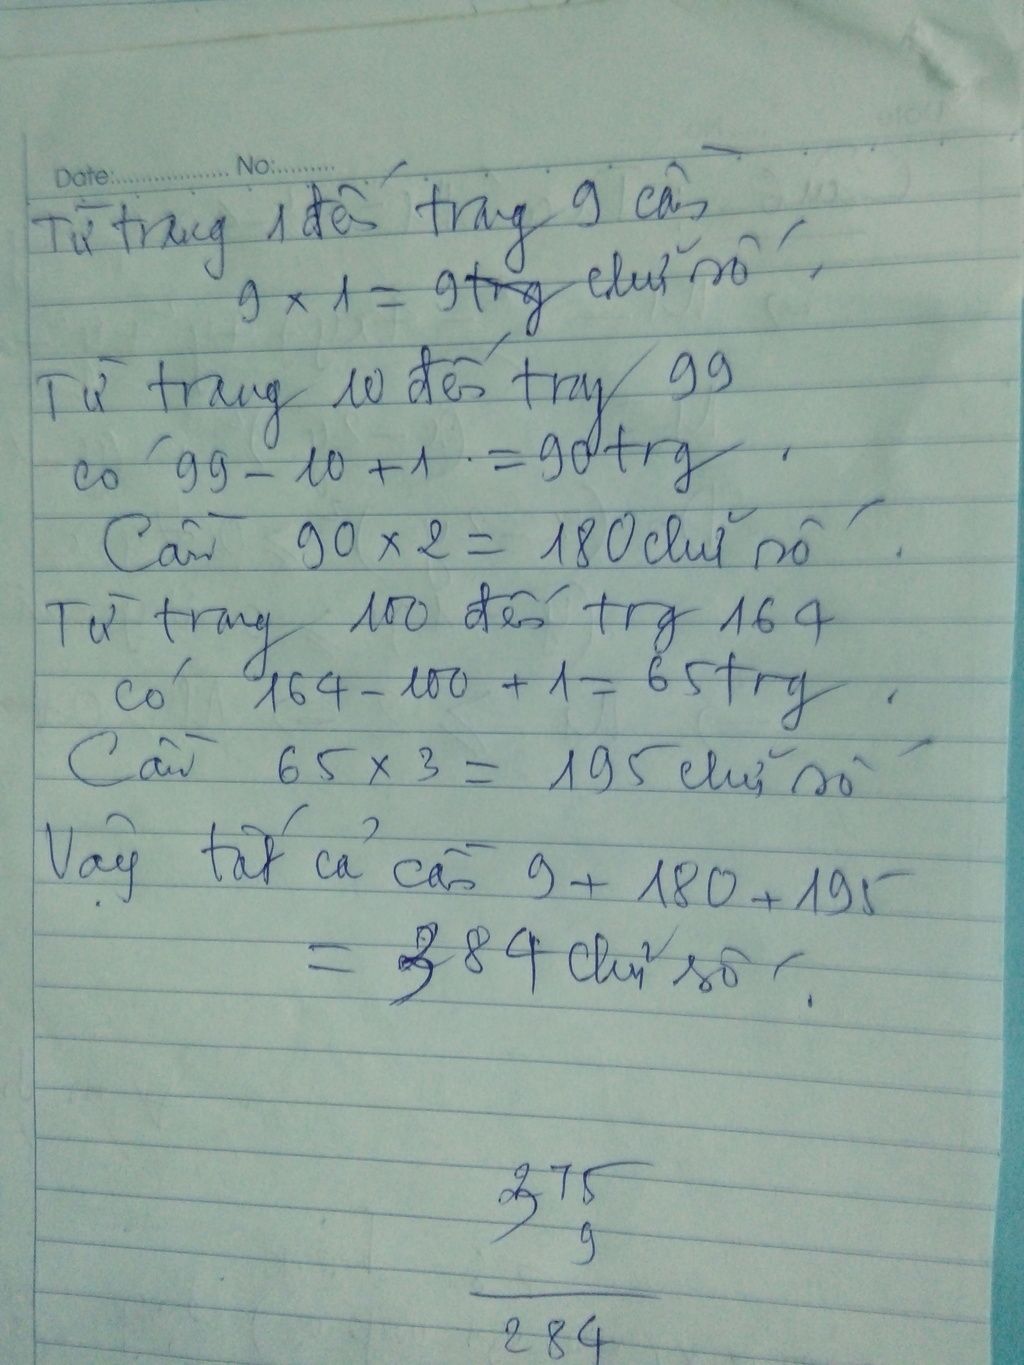 Date:................. No:.........
Từ trang 1 đến trang 9 cần
9 x 1 = 9 trg chữ số.
Từ trang 10 đến trag 99
có 99 - 10 + 1 = 90 trg.
Cần 90 x 2 = 180 chữ số.
Từ trang 100 đến trg 164
có 164 - 100 + 1 = 65 trg.
Cần 65 x 3 = 195 chữ số
Vậy tất cả cần 9 + 180 + 195
= 384 chữ số.
375
9
284